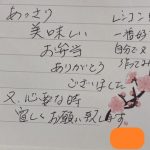 あっさり
美味しい
お弁当
ありがとう
ございました
又、必要な時
宜しくお願い致します
レンコン
一番好
自分で
作ってみ